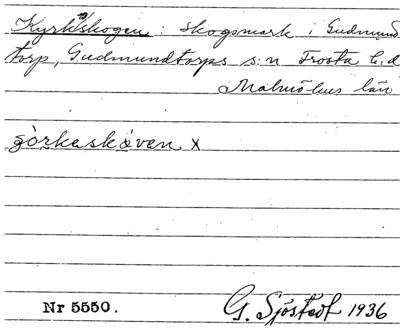 Kyrkskogen: Skogsmark i Gudmund
torp, Gudmundtorps s:n Frosta h.d
Malmöhus län
Nr 5550.
G. Sjöstedt 1936